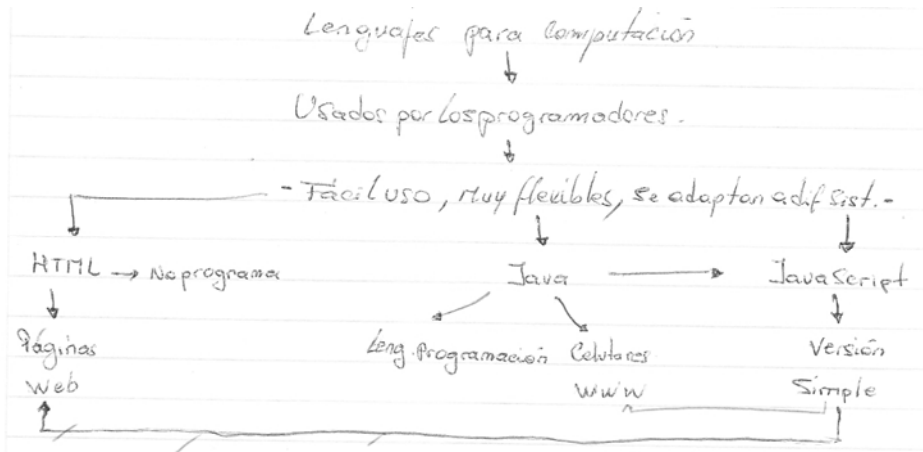 Lenguajes para Computación
Usados por los programadores.
- Fácil uso, Muy flexibles, se adaptan a dif sist. -
HTML → No programa
Java → JavaScript
Páginas
Web
Leng. programación
Celulares
WWW
Versión
Simple